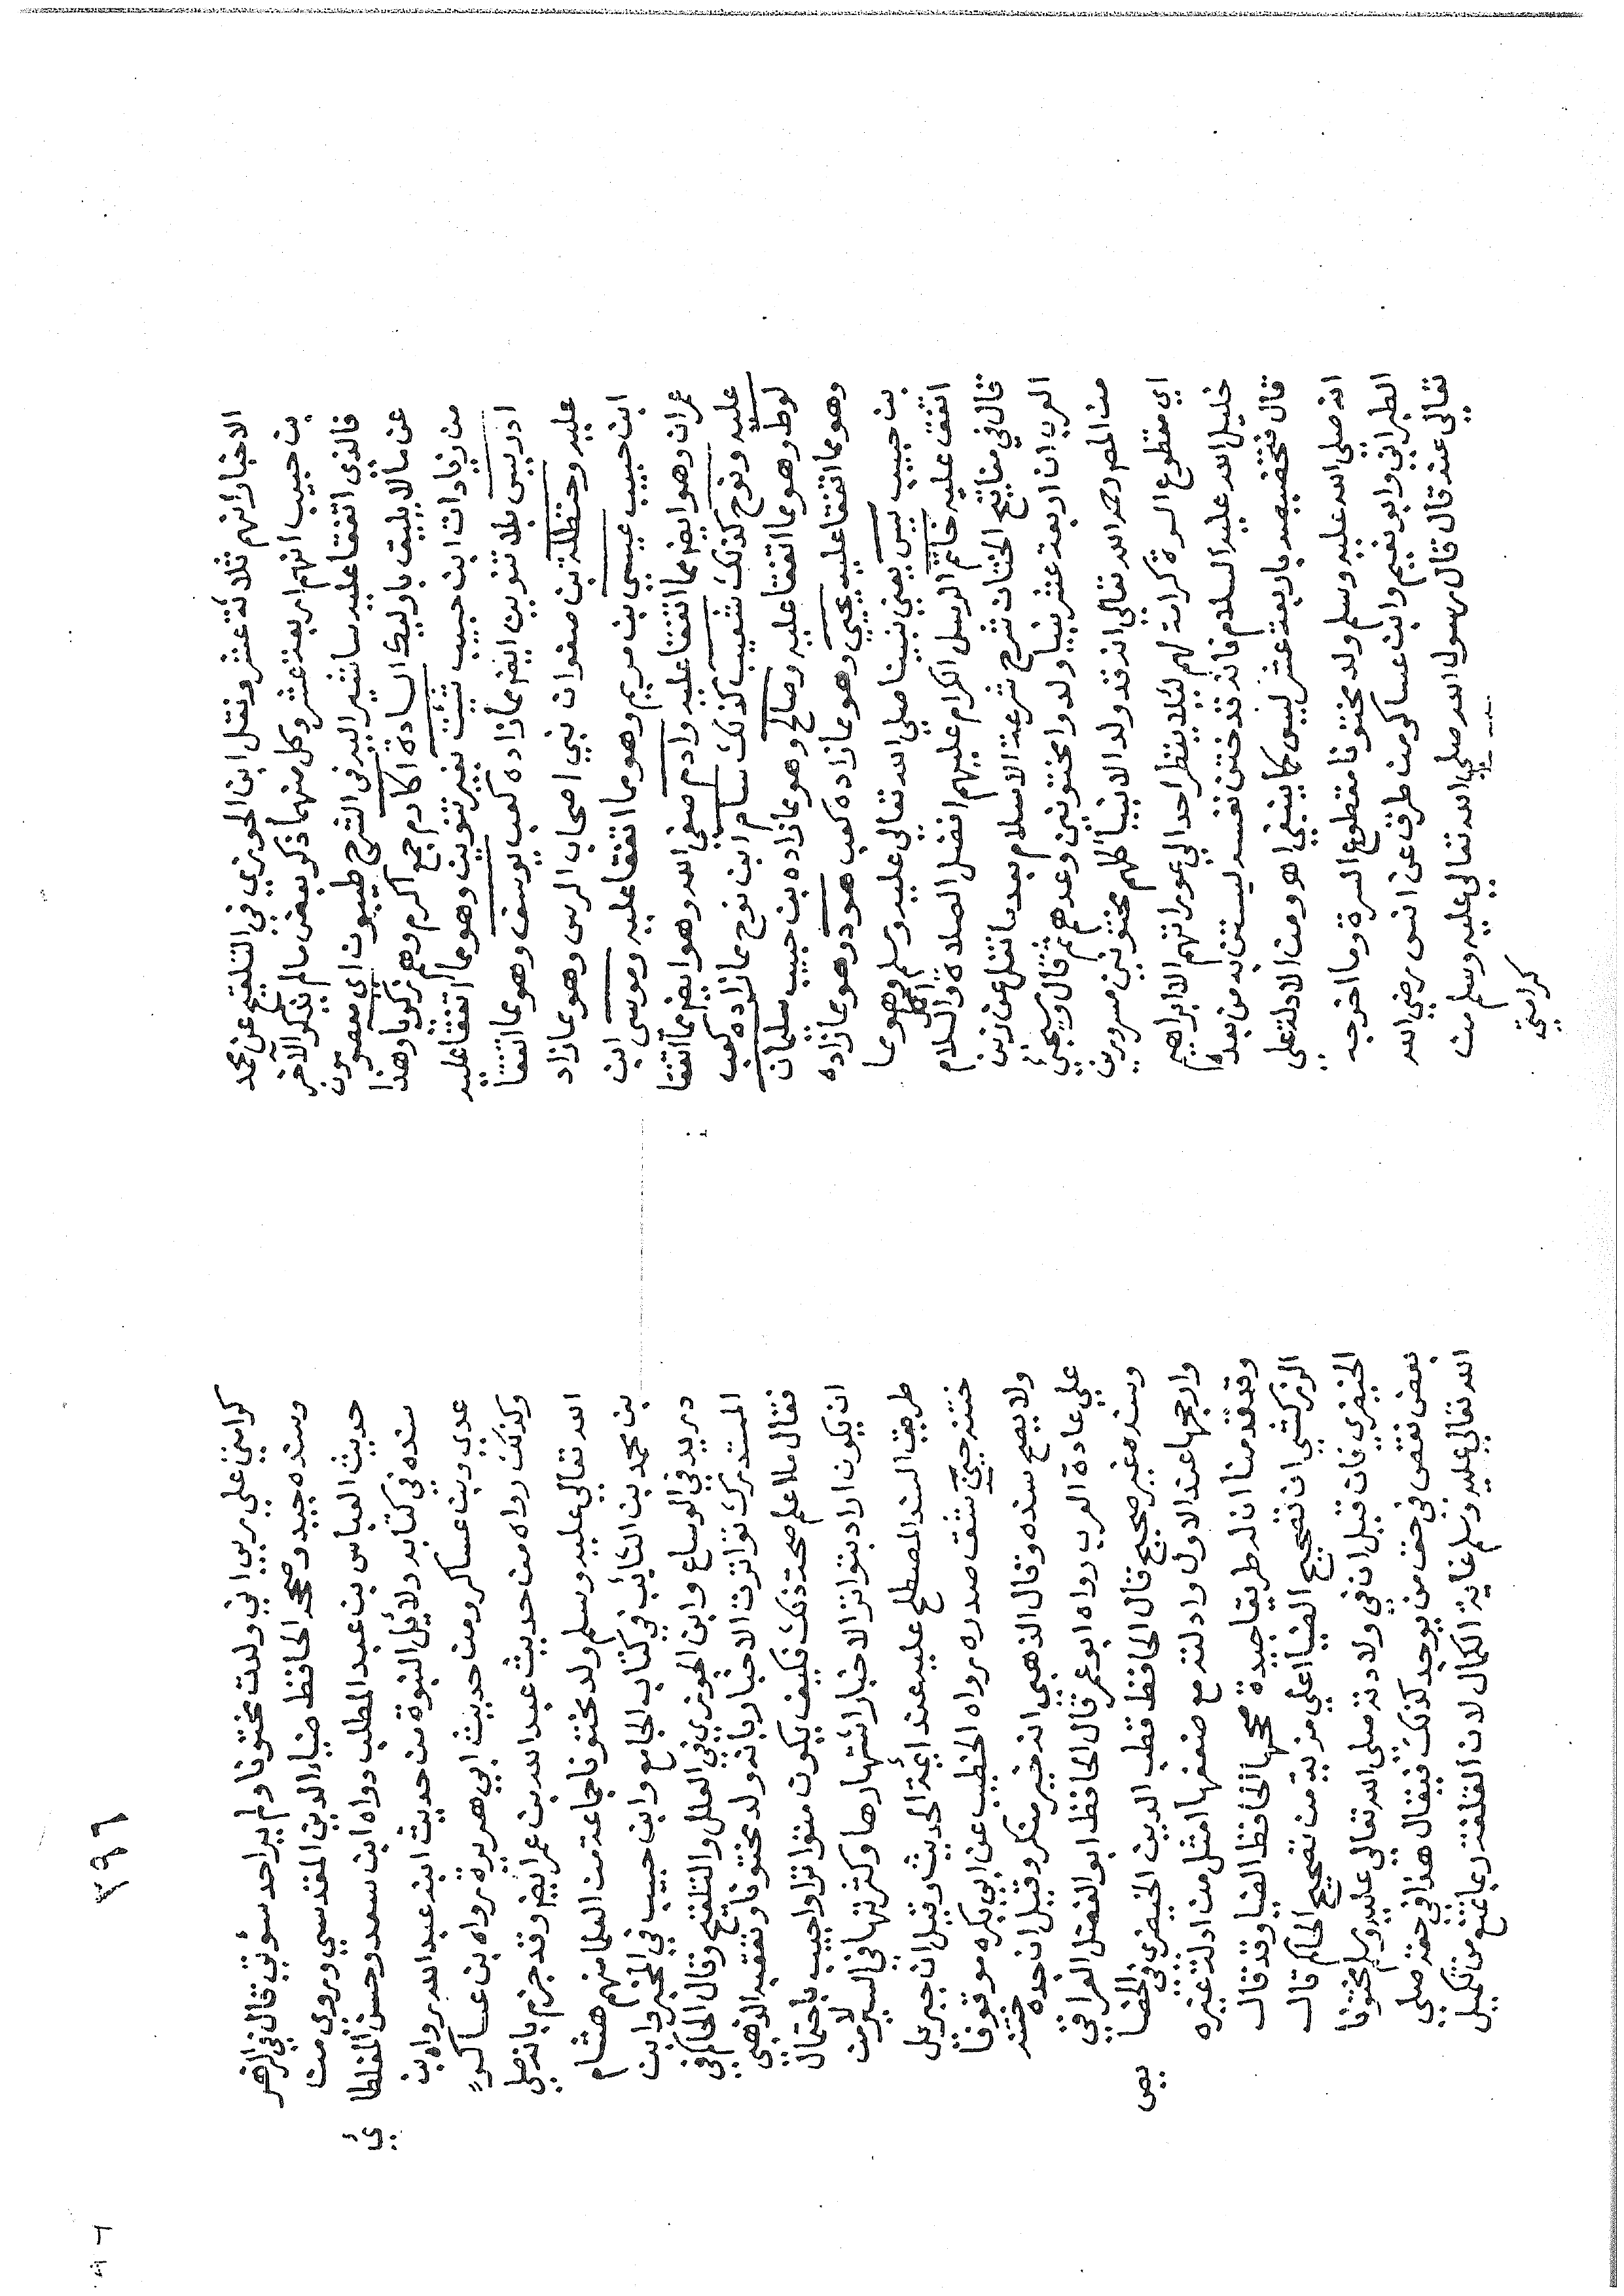 الاخبار انهم ثلاثة عشر ونقل ابن الجوزي في التلقيح عن محمد
بن حبيب انهم اربعة عشر وكل منهما ذكر بعض ما لم يذكر الآخر
فالذي اتفقا عليه ساشير اليه في الشرح طيبون اي معصومون
عن ما لا يليق باوليك السادة اكارم جمع اكرم وهم زكريا وهذا
من زيادات ابن حبيب شيث بغير تنوين وهو مما اتفقا عليه
ادريس بلا تنوين ايضا مما زاده كعب يوسف وهو مما اتفقا
عليه وحنظلة بن صفوان نبي اصحاب الرس وهو مما زاد
ابن حبيب عيسي بن مريم وهو مما اتفقا عليه وموسى ابن
عمران وهو ايضا مما اتفقا عليه وادم صفي الله وهو ايضا مما اتفقا
عليه ونوح كذلك شعيب كذلك سام ابن نوح مما زاده كعب
لوط وهو مما اتفقا عليه وصالح وهو مما زاده بن حبيب سليمان
وهو مما اتفقا عليه يحيي وهو مما زاده كعب هود وهو مما زاده
بن حبيب يس يعني نبينا صلي الله تعالي عليه وسلم وهو مما
اتفق عليه خاتم الرسل الكرام عليهم افضل الصلاة والسلام
قال في مفاتيح الجنان شرح شرعة الاسلام بعد ما نقل عن زين
العرب ان اربعة عشر نبيا ولدوا مختونين وعدهم ثم قال ويجئ
من المص رحمه الله تعالي انه قد ولد الانبيا كلهم مختونين مسرورين
اي مقطوع السرة كرامة لهم لئلا ينظر احد الي عوراتهم الا ابراهيم
خليل الله عليه السلام فانه قد ختن نفسه ليستن به من بعده
قال فتخصيصه باربعة عشر ليس كما ينبغي اهـ ومن الادلة علي
انه صلي الله عليه وسلم ولد مختونا مقطوع السرة وما اخرجه
الطبراني وابو نعيم وابن عساكر من طرق عن انس رضي الله
تعالي عنه قال قال رسول الله صلي الله تعالي عليه وسلم من
كرامتي
كرامتي علي ربي اني ولدت مختونا ولم ير احد سؤتي قال في الزهر
وسنده جيد وصححه الحافظ ضياء الدين المقدسي وروى من
حديث العباس بن عبد المطلب رواه ابن سعد وحسن المغلطائي
سنده في كتابه دلايل النبوة من حديث ابنه عبد الله رواه بن
عدي وبن عساكر ومن حديث ابي هريرة رواه بن عساكر
وكذلك رواه من حديث عبد الله بن عمر ايضا وقد جزم بانه صلي
الله تعالي عليه وسلم ولد مختونا جماعة من العلما منهم هشام
بن محمد بن السائب في كتاب الجامع وابن حبيب في المحبر وابن
دريد في الوساع وابن الجوزي في العلل والتلقيح وقال الحاكم في
المستدرك تواترت الاخبار بانه ولد مختونا وتعقبه الذهبي
فقال ما اعلم صحة ذلك فكيف يكون متواترا واجيب باحتمال
ان يكون اراد بتواتر الاخبار اشتهارها وكثرتها في السير لا من
طريق السند المصطلح عليه عند ايمة الحديث وقيل ان جبريل
ختنه حين شق صدره رواه الخطيب عن ابي بكره موقوفا
ولا يصح سنده وقال الذهبي انه خبر منكر وقيل ان جده ختنه
علي عادة العرب رواه ابو عمر قال الحافظ ابو الفضل العراقي
وسنده غير صحيح قال الحافظ قطب الدين الخيضري في الخصايص
وارجحها عند الاول وادلته مع ضعفها امثل من ادلة غيره
وقد قدمنا ان له طريقا جيدة صححها الحافظ الضيا وقد قال
الزركشي ان تصحيح الضيا اعلي مزية من تصحيح الحاكم قال
الخيضري فان قيل ان في ولادته صلي الله تعالي عليه وسلم مختونا
بعض نقص في حق من يوجد كذلك فيقال هذا في حقه صلي
الله تعالي عليه وسلم غاية الكمال لان القلفة ربما تمنع من تكميل